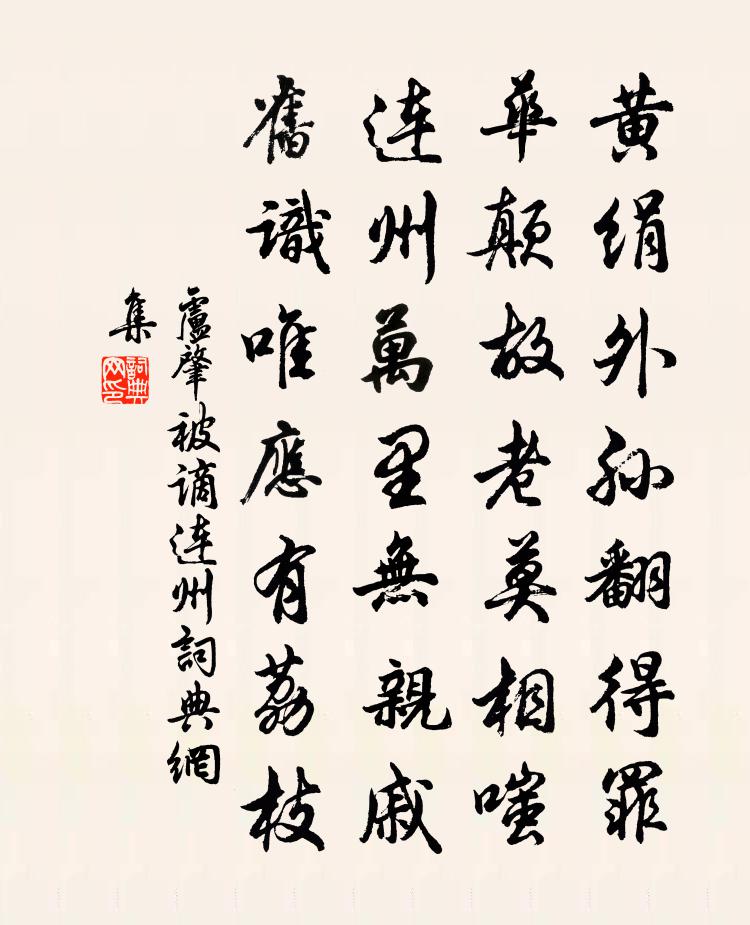 黄絹外孫翻得罪
華顛故老莫相嗤
連州萬里無親戚
舊識唯應有荔枝
盧肇被謫連州詞典網
集
詞典网印